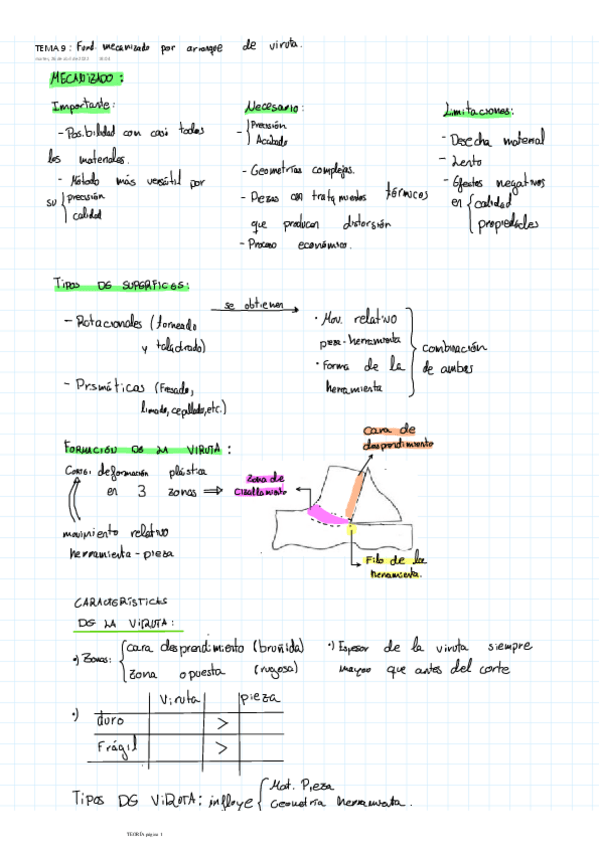 TEMA 9: Fund. mecanizado por arranque de viruta.
MECANIZADO:
Importante:
- Posibilidad con casi todos
los materiales.
- Método más versátil por
su { precisión
calidad
Necesario:
- { Precisión
Acabado
- Geometrías complejas.
- Piezas con tratamientos térmicos
que producen distorsión
- Proceso económico.
Limitaciones:
- Desecha material
- Lento
- Efectos negativos
en { calidad
propiedades
TIPOS DE SUPERFICIES:
- Rotacionales (torneado
y taladrado)
- Prismáticas (Fresado,
limado, cepillado, etc.)
se obtienen
· Mov. relativo
pieza-herramienta
· Forma de la
herramienta
combinación
de ambas
FORMACIÓN DE LA VIRUTA:
Corte: deformación plástica
en 3 zonas ⇒
movimiento relativo
herramienta - pieza
Zona de
Cizallamiento
Cara de
desprendimiento
Filo de la
herramienta.
CARACTERÍSTICAS
DE LA VIRUTA:
·) Zonas: { cara desprendimiento (bruñida)
zona opuesta (rugosa)
·) Espesor de la viruta siempre
mayor que antes del corte
·)
Viruta pieza
duro >
Frágil >
TIPOS DE VIRUTA: influye { Mat. Pieza
Geometría herramienta.
TEORÍA página 1